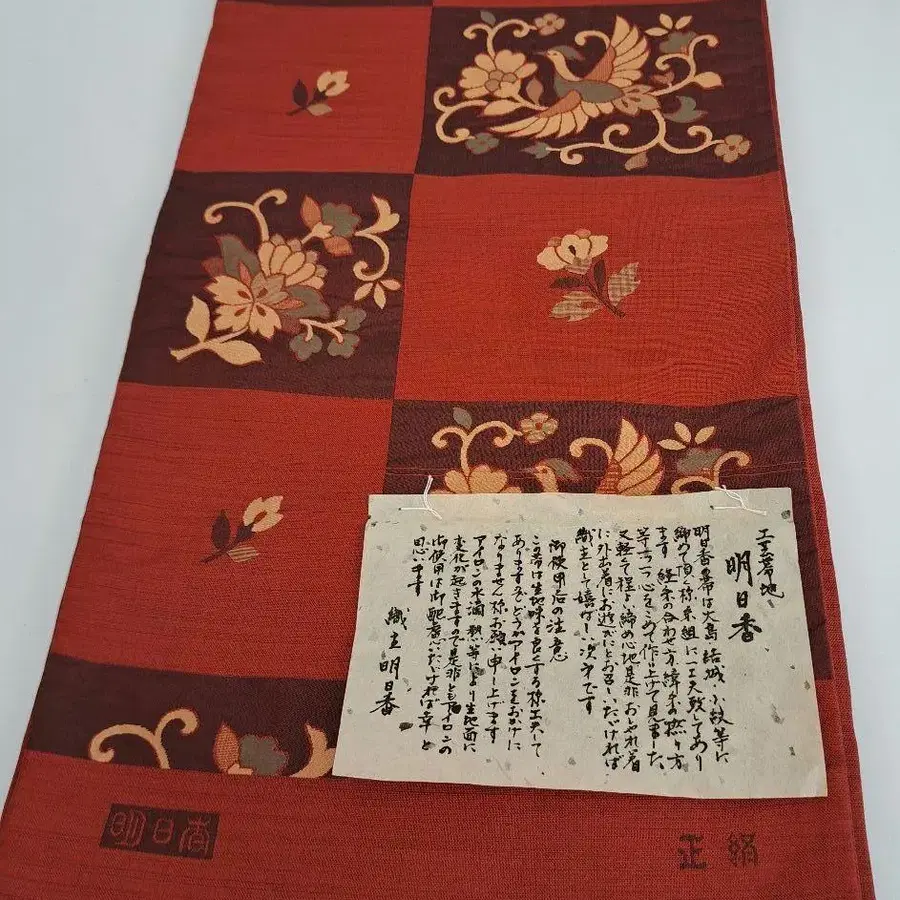 工芸帯地
明日香
明日香の帯は大島、結城、小紋等に
締め頂く称糸組に工夫致してあり
ます 経糸の合わせ方 緯糸の撚り方
等々一心をこめて作り上げて見ました、
又軽くて程よい締め心地是非おしゃれ着
に外出着にお遊びにとお召しいただければ
織主として嬉しい次才です
御使用后の注意
この帯は生地味を良くする称工夫して
ありますのでどうかアイロンをおかけに
なりません称お願い申し上げます
アイロンの水滴 熱等により生地面に
変化が起きますので是非ともアイロンの
御使用は御配慮いただければ幸と
思います
織主 明日香
明日香
正絹